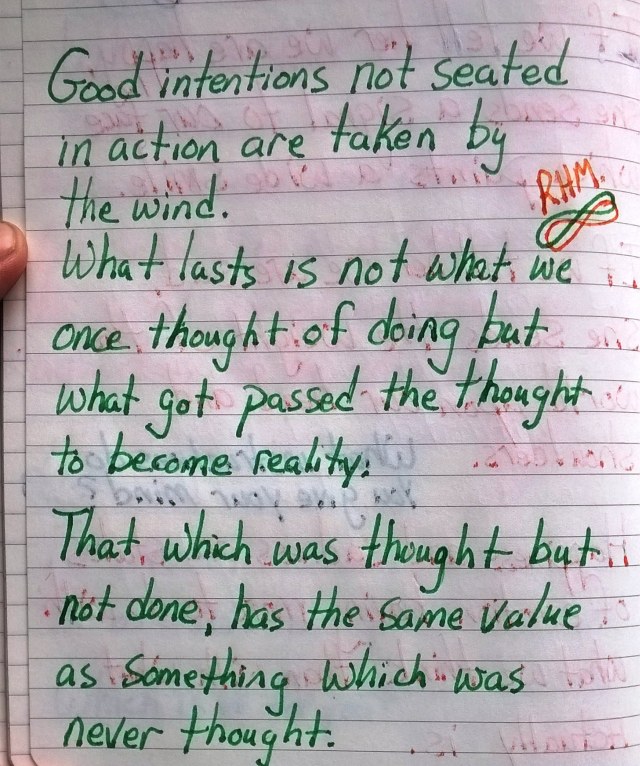 Good intentions not seated
in action are taken by
the wind.
RHM.
What lasts is not what we
once thought of doing but
what got passed the thought
to become reality.
That which was thought but
not done, has the same value
as something which was
never thought.